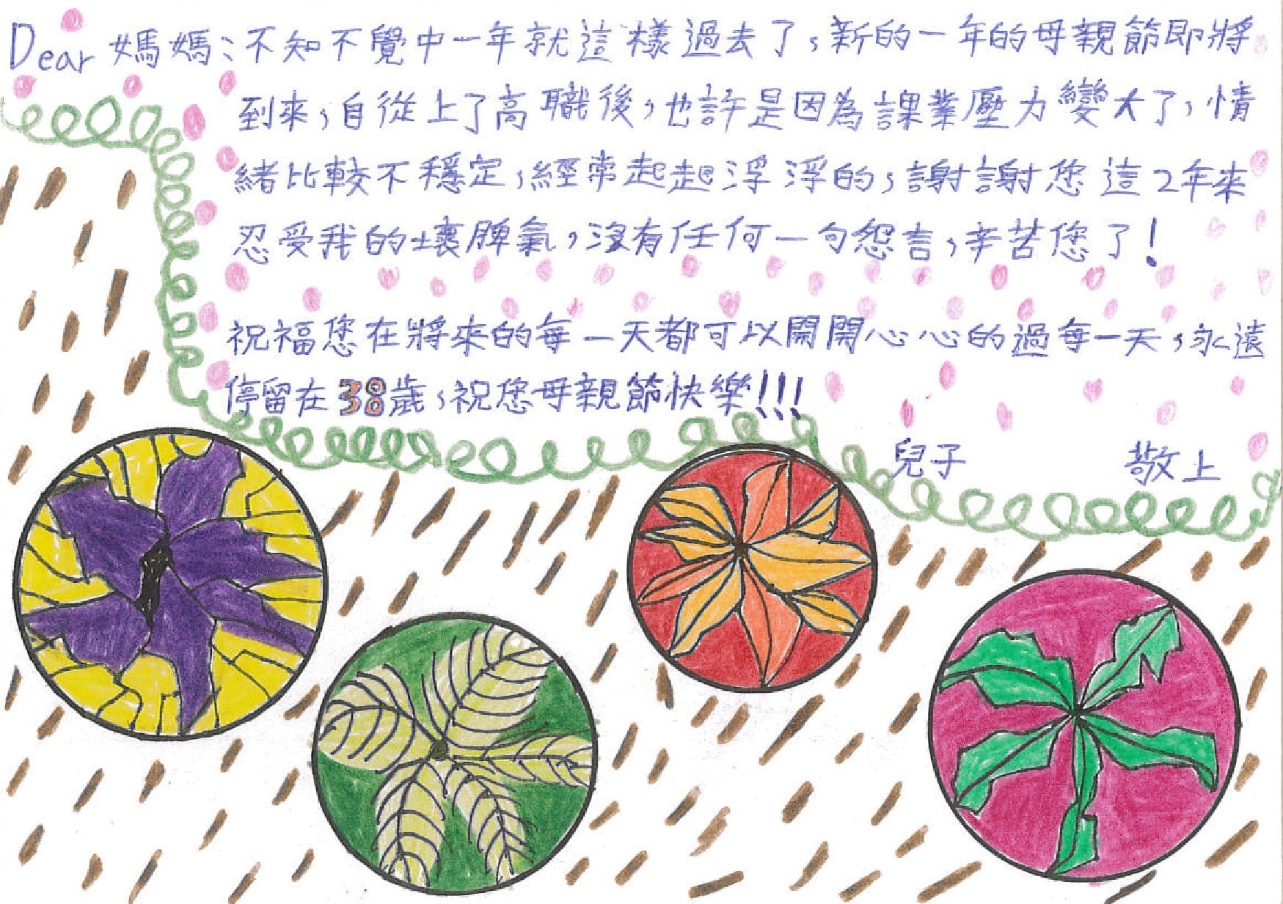 Dear 媽媽：不知不覺中一年就這樣過去了，新的一年的母親節即將
到來，自從上了高職後，也許是因為課業壓力變大了，情
緒比較不穩定，經常起起浮浮的，謝謝您這2年來
忍受我的壞脾氣，沒有任何一句怨言，辛苦您了！
祝福您在將來的每一天都可以開開心心的過每一天，永遠
停留在38歲，祝您母親節快樂!!!
兒子 敬上